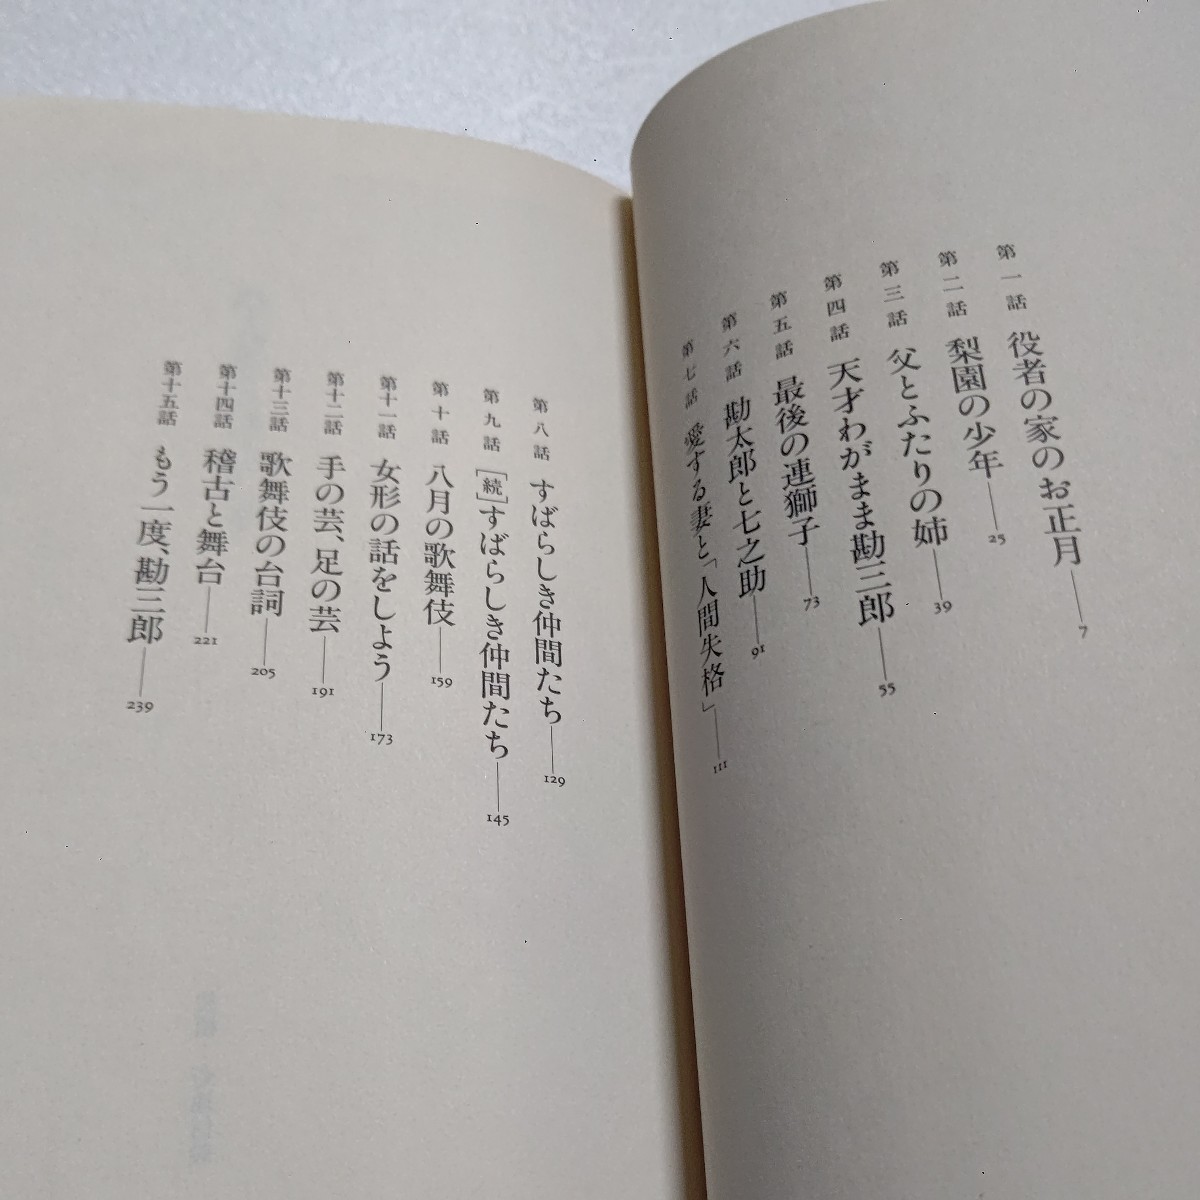 第一話 役者の家のお正月――7
第二話 梨園の少年――25
第三話 父とふたりの姉――39
第四話 天才わがまま勘三郎――55
第五話 最後の連獅子――73
第六話 勘太郎と七之助――91
第七話 愛する妻と「人間失格」――111
第八話 すばらしき仲間たち――129
第九話 [続]すばらしき仲間たち――145
第十話 八月の歌舞伎――159
第十一話 女形の話をしよう――173
第十二話 手の芸、足の芸――191
第十三話 歌舞伎の台詞――205
第十四話 稽古と舞台――221
第十五話 もう一度、勘三郎――239